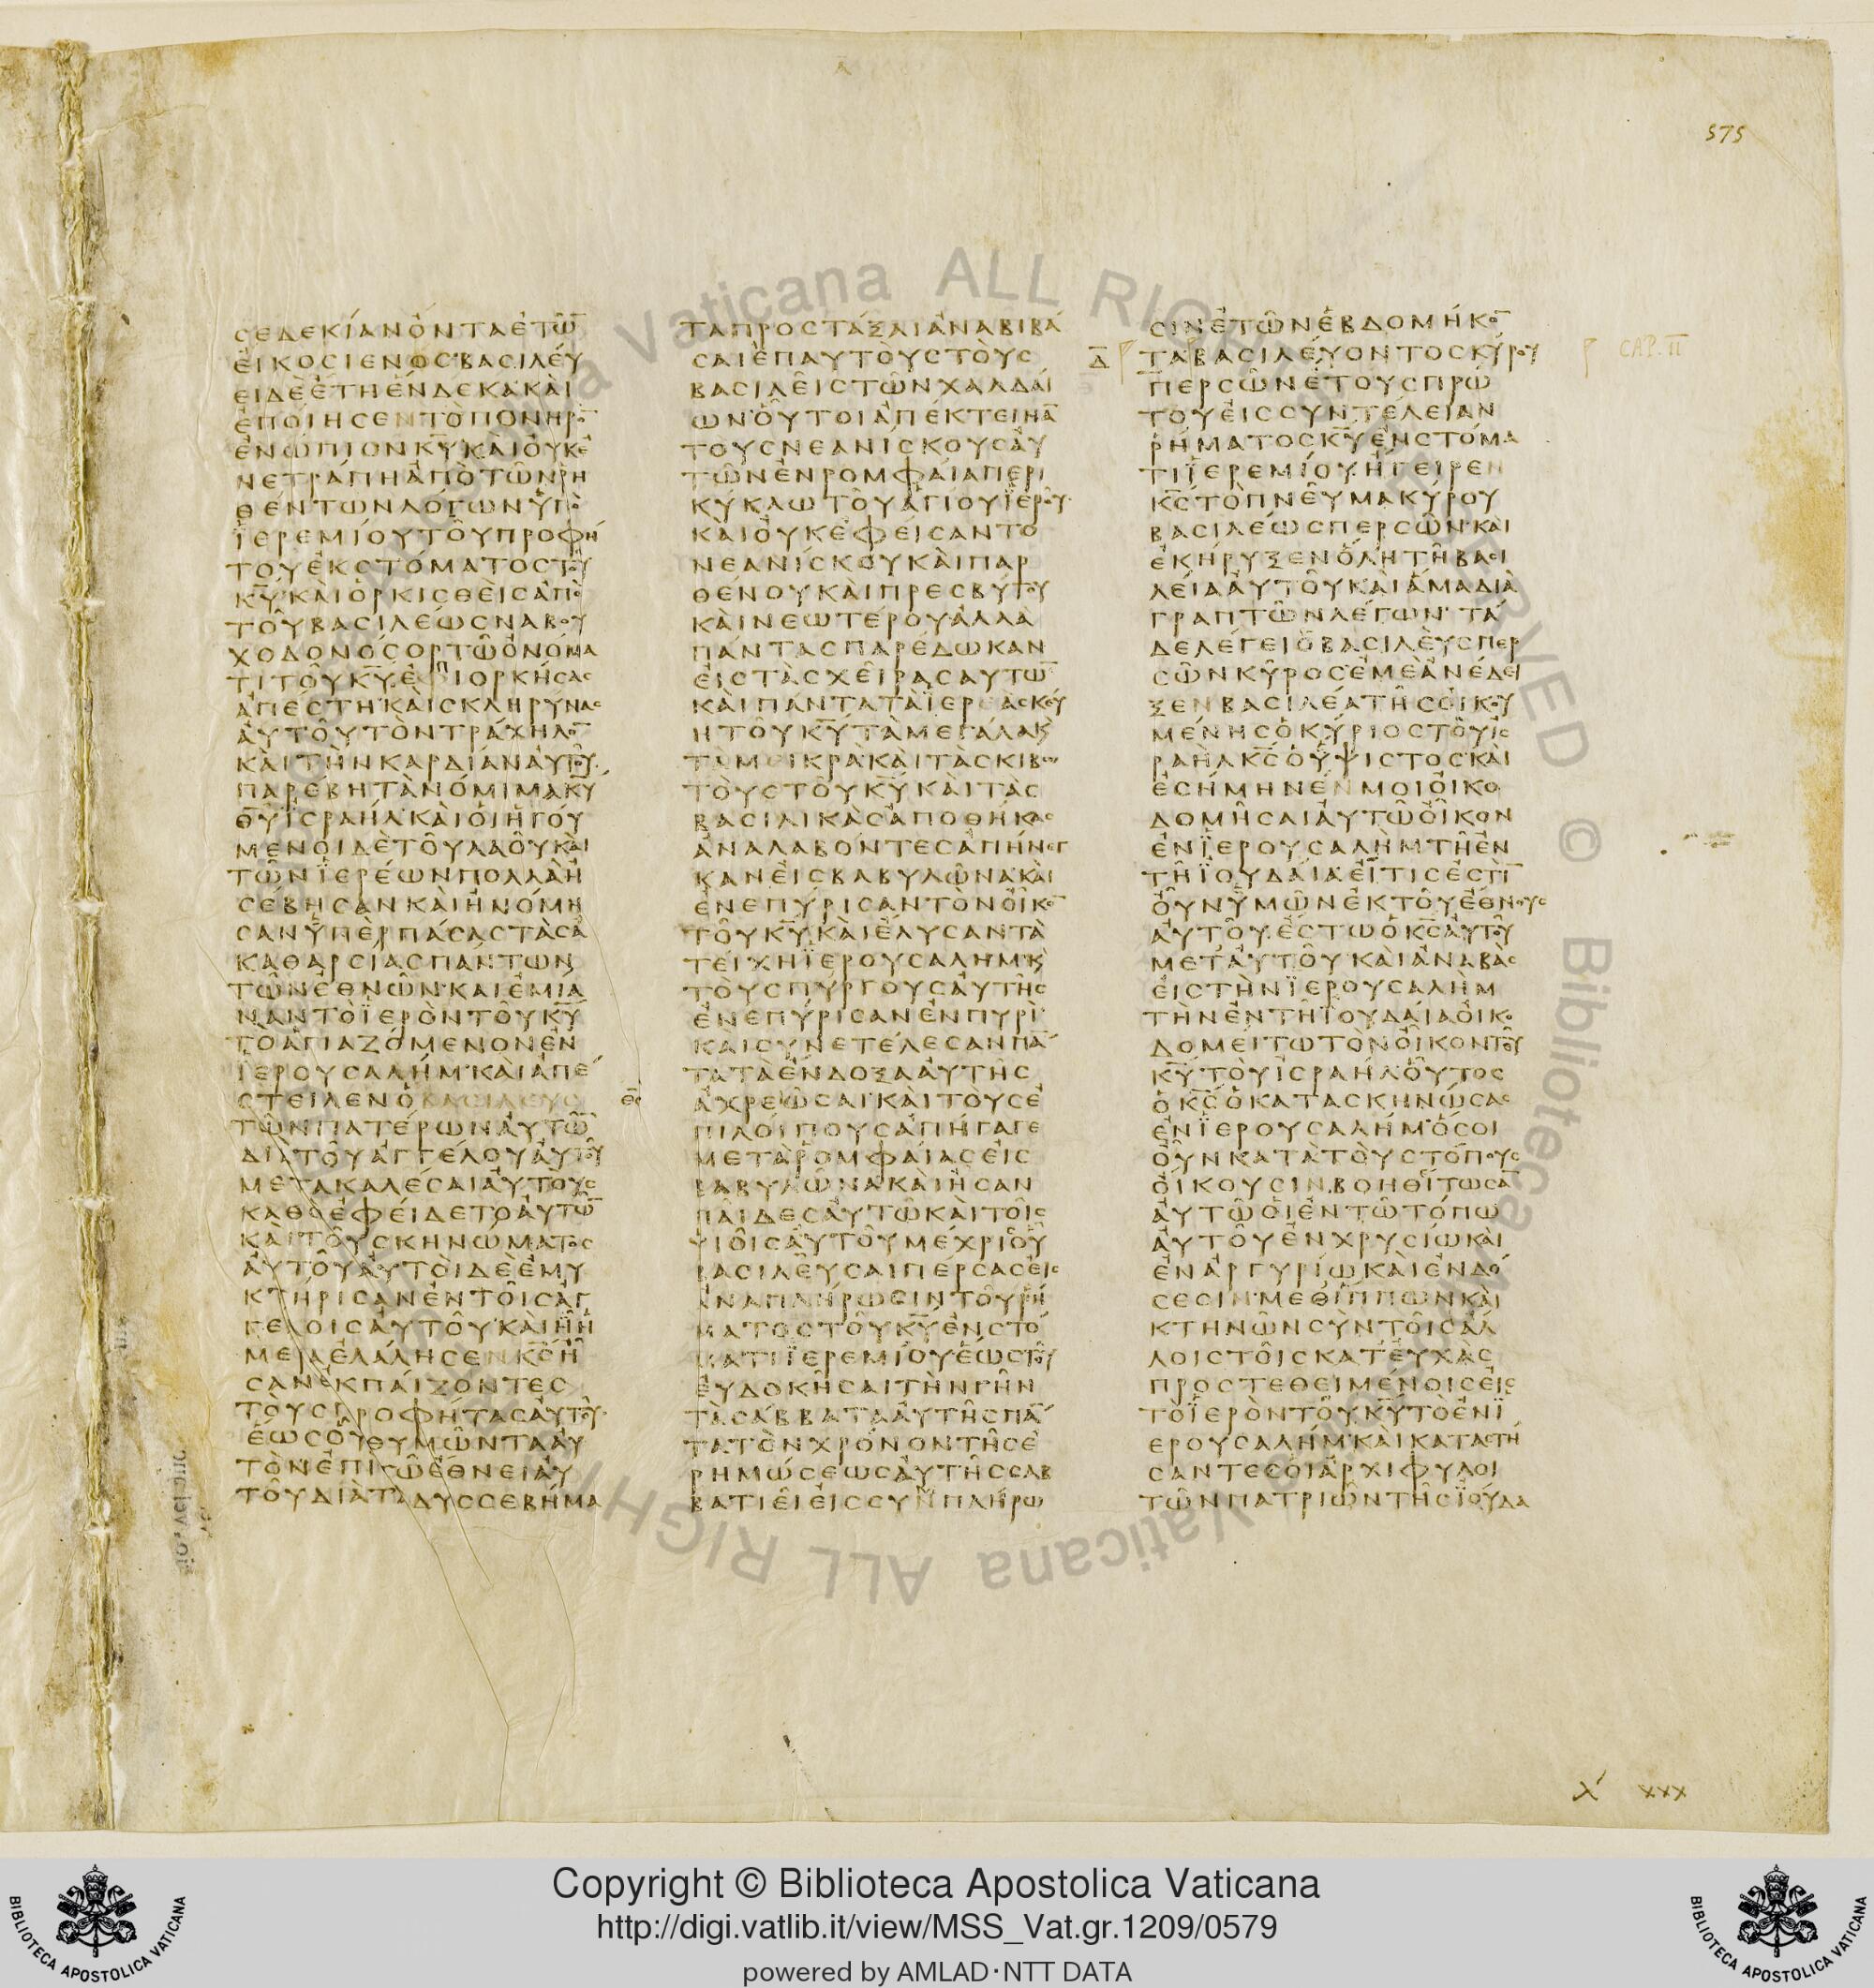 575
CAP. II
ϹΕΔΕΚΙΑΝΟΝΤΑΕΤΩ̅
ΕΙΚΟϹΙΕΝΟϹΒΑϹΙΛΕΥ
ΕΙΔΕΕΤΗΕΝΔΕΚΑΚΑΙ
ΕΠΟΙΗϹΕΝΤΟΠΟΝΗΡΟ̅
ΕΝΩΠΙΟΝΚ̅Υ̅ΚΑΙΟΥΚΕ
ΝΕΤΡΑΠΗΑΠΟΤΩΝΡΗ
ΘΕΝΤΩΝΛΟΓΩΝΥΠΟ
ΙΕΡΕΜΙΟΥΤΟΥΠΡΟΦΗ
ΤΟΥΕΚϹΤΟΜΑΤΟϹΤΟΥ
Κ̅Υ̅ΚΑΙΟΡΚΙϹΘΕΙϹΑΠΟ
ΤΟΥΒΑϹΙΛΕΩϹΝΑΒΟΥ
ΧΟΔΟΝΟϹΟΡΤΩΟΝΟΜΑ
ΤΙΤΟΥΚ̅Υ̅ΕΠΙΟΡΚΗϹΑϹ
ΑΠΕϹΤΗΚΑΙϹΚΛΗΡΥΝΑϹ
ΑΥΤΟΥΤΟΝΤΡΑΧΗΛΟ̅
ΚΑΙΤΗΝΚΑΡΔΙΑΝΑΥΤΟΥ
ΠΑΡΕΒΗΤΑΝΟΜΙΜΑΚ̅Υ̅
Θ̅Υ̅ΙϹΡΑΗΛΚΑΙΟΙΗΓΟΥ
ΜΕΝΟΙΔΕΤΟΥΛΑΟΥΚΑΙ
ΤΩΝΙΕΡΕΩΝΠΟΛΛΑΗ
ϹΕΒΗϹΑΝΚΑΙΗΝΟΜΗ
ϹΑΝΥΠΕΡΠΑϹΑϹΤΑϹΑ
ΚΑΘΑΡϹΙΑϹΠΑΝΤΩΝ
ΤΩΝΕΘΝΩΝΚΑΙΕΜΙΑ
ΝΑΝΤΟΙΕΡΟΝΤΟΥΚ̅Υ̅
ΤΟΑΓΙΑΖΟΜΕΝΟΝΕΝ
ΙΕΡΟΥϹΑΛΗΜΚΑΙΑΠΕ
ϹΤΕΙΛΕΝΟΒΑϹΙΛΕΥϹ
ΤΩΝΠΑΤΕΡΩΝΑΥΤΩ̅
ΔΙΑΤΟΥΑΓΓΕΛΟΥΑΥΤΟΥ
ΜΕΤΑΚΑΛΕϹΑΙΑΥΤΟΥϹ
ΚΑΘΟΕΦΕΙΔΕΤΟΑΥΤΩ̅
ΚΑΙΤΟΥϹΚΗΝΩΜΑΤΟϹ
ΑΥΤΟΥΑΥΤΟΙΔΕΕΜΥ
ΚΤΗΡΙϹΑΝΕΝΤΟΙϹΑΓ
ΓΕΛΟΙϹΑΥΤΟΥΚΑΙΗΗ
ΜΕΡΑΕΛΑΛΗϹΕΝΚ̅Ϲ̅Η
ϹΑΝΕΚΠΑΙΖΟΝΤΕϹ
ΤΟΥϹΠΡΟΦΗΤΑϹΑΥΤΟΥ
ΕΩϹΟΥΘΥΜΩΝΤΑΑΥ
ΤΟΝΕΠΙΤΩΕΘΝΕΙΑΥ
ΤΟΥΔΙΑΤΑΔΥϹϹΕΒΗΜΑ
ΤΑΠΡΟϹΤΑΞΑΙΑΝΑΒΙΒΑ
ϹΑΙΕΠΑΥΤΟΥϹΤΟΥϹ
ΒΑϹΙΛΕΙϹΤΩΝΧΑΛΔΑΙ
ΩΝΟΥΤΟΙΑΠΕΚΤΕΙΝΑ̅
ΤΟΥϹΝΕΑΝΙϹΚΟΥϹΑΥ
ΤΩΝΕΝΡΟΜΦΑΙΑΠΕΡΙ
ΚΥΚΛΩΤΟΥΑΓΙΟΥΙΕΡΟΥ
ΚΑΙΟΥΚΕΦΕΙϹΑΝΤΟ
ΝΕΑΝΙϹΚΟΥΚΑΙΠΑΡ
ΘΕΝΟΥΚΑΙΠΡΕϹΒΥΤΟΥ
ΚΑΙΝΕΩΤΕΡΟΥΑΛΛΑ
ΠΑΝΤΑϹΠΑΡΕΔΩΚΑΝ
ΕΙϹΤΑϹΧΕΙΡΑϹΑΥΤΩ̅
ΚΑΙΠΑΝΤΑΤΑΙΕΡΑϹΚΕΥ
ΗΤΟΥΚ̅Υ̅ΤΑΜΕΓΑΛΑΚ
ΤΑΜΕΙΚΡΑΚΑΙΤΑϹΚΙΒΩ
ΤΟΥϹΤΟΥΚ̅Υ̅ΚΑΙΤΑϹ
ΒΑϹΙΛΙΚΑϹΑΠΟΘΗΚΑϹ
ΑΝΑΛΑΒΟΝΤΕϹΑΠΗΝΕΓ
ΚΑΝΕΙϹΒΑΒΥΛΩΝΑΚΑΙ
ΕΝΕΠΥΡΙϹΑΝΤΟΝΟΙΚΟ̅
ΤΟΥΚ̅Υ̅ΚΑΙΕΛΥϹΑΝΤΑ
ΤΕΙΧΗΙΕΡΟΥϹΑΛΗΜΚ
ΤΟΥϹΠΥΡΓΟΥϹΑΥΤΗϹ
ΕΝΕΠΥΡΙϹΑΝΕΝΠΥΡΙ
ΚΑΙϹΥΝΕΤΕΛΕϹΑΝΠΑ̅
ΤΑΤΑΕΝΔΟΞΑΑΥΤΗϹ
ΑΧΡΕΩϹΑΙΚΑΙΤΟΥϹΕ
ΠΙΛΟΙΠΟΥϹΑΠΗΓΑΓΕ
ΜΕΤΑΡΟΜΦΑΙΑϹΕΙϹ
ΒΑΒΥΛΩΝΑΚΑΙΗϹΑΝ
ΠΑΙΔΕϹΑΥΤΩΚΑΙΤΟΙϹ
ΥΙΟΙϹΑΥΤΟΥΜΕΧΡΙΟΥ
ΒΑϹΙΛΕΥϹΑΙΠΕΡϹΑϹΕΙϹ
ΑΝΑΠΛΗΡΩϹΙΝΤΟΥΡΗ
ΜΑΤΟϹΤΟΥΚ̅Υ̅ΕΝϹΤΟ
ΜΑΤΙΙΕΡΕΜΙΟΥΕΩϹΤΟΥ
ΕΥΔΟΚΗϹΑΙΤΗΝΓΗΝ
ΤΑϹΑΒΒΑΤΑΑΥΤΗϹΠΑ̅
ΤΑΤΟΝΧΡΟΝΟΝΤΗϹΕ
ΡΗΜΩϹΕΩϹΑΥΤΗϹϹΑΒ
ΒΑΤΙΕΙΕΙϹϹΥΝΠΛΗΡΩ
ϹΙΝΕΤΩΝΕΒΔΟΜΗΚΟ̅
Δ̅ ΤΑΒΑϹΙΛΕΥΟΝΤΟϹΚΥΡΟΥ
ΠΕΡϹΩΝΕΤΟΥϹΠΡΩ
ΤΟΥΕΙϹϹΥΝΤΕΛΕΙΑΝ
ΡΗΜΑΤΟϹΚ̅Υ̅ΕΝϹΤΟΜΑ
ΤΙΙΕΡΕΜΙΟΥΗΓΕΙΡΕΝ
Κ̅Ϲ̅ΤΟΠΝΕΥΜΑΚΥΡΟΥ
ΒΑϹΙΛΕΩϹΠΕΡϹΩΝΚΑΙ
ΕΚΗΡΥΞΕΝΟΛΗΤΗΒΑϹΙ
ΛΕΙΑΑΥΤΟΥΚΑΙΑΜΑΔΙΑ
ΓΡΑΠΤΩΝΛΕΓΩΝΤΑ
ΔΕΛΕΓΕΙΟΒΑϹΙΛΕΥϹΠΕΡ
ϹΩΝΚΥΡΟϹΕΜΕΑΝΕΔΕΙ
ΞΕΝΒΑϹΙΛΕΑΤΗϹΟΙΚΟΥ
ΜΕΝΗϹΟΚΥΡΙΟϹΤΟΥΙϹ
ΡΑΗΛΚ̅Ϲ̅ΟΥΨΙϹΤΟϹΚΑΙ
ΕϹΗΜΗΝΕΝΜΟΙΟΙΚΟ
ΔΟΜΗϹΑΙΑΥΤΩΟΙΚΟΝ
ΕΝΙΕΡΟΥϹΑΛΗΜΤΗΕΝ
ΤΗΙΟΥΔΑΙΑΕΙΤΙϹΕϹΤΙ̅
ΟΥΝΥΜΩΝΕΚΤΟΥΕΘΝΟΥϹ
ΑΥΤΟΥΕϹΤΩΟΚ̅Ϲ̅ΑΥΤΟΥ
ΜΕΤΑΥΤΟΥΚΑΙΑΝΑΒΑϹ
ΕΙϹΤΗΝΙΕΡΟΥϹΑΛΗΜ
ΤΗΝΕΝΤΗΙΟΥΔΑΙΑΟΙΚΟ
ΔΟΜΕΙΤΩΤΟΝΟΙΚΟΝΤΟΥ
Κ̅Υ̅ΤΟΥΙϹΡΑΗΛΟΥΤΟϹ
ΟΚ̅Ϲ̅ΟΚΑΤΑϹΚΗΝΩϹΑϹ
ΕΝΙΕΡΟΥϹΑΛΗΜΟϹΟΙ
ΟΥΝΚΑΤΑΤΟΥϹΤΟΠΟΥϹ
ΟΙΚΟΥϹΙΝΒΟΗΘΙΤΩϹΑ̅
ΑΥΤΩΟΙΕΝΤΩΤΟΠΩ
ΑΥΤΟΥΕΝΧΡΥϹΙΩΚΑΙ
ΕΝΑΡΓΥΡΙΩΚΑΙΕΝΔΟ
ϹΕϹΙΝΜΕΘΙΠΠΩΝΚΑΙ
ΚΤΗΝΩΝϹΥΝΤΟΙϹΑΛ
ΛΟΙϹΤΟΙϹΚΑΤΕΥΧΑϹ
ΠΡΟϹΤΕΘΕΙΜΕΝΟΙϹΕΙϹ
ΤΟΙΕΡΟΝΤΟΥΚ̅Υ̅ΤΟΕΝΙ
ΕΡΟΥϹΑΛΗΜΚΑΙΚΑΤΑϹΤΗ
ϹΑΝΤΕϹΟΙΑΡΧΙΦΥΛΟΙ
ΤΩΝΠΑΤΡΙΩΝΤΗϹΙΟΥΔΑ
λ´ xxx
Vaticana ALL RIGHTS RESERVED © Biblioteca Vaticana ALL RIGH
Copyright © Biblioteca Apostolica Vaticana
http://digi.vatlib.it/view/MSS_Vat.gr.1209/0579
powered by AMLAD·NTT DATA
BIBLIOTECA APOSTOLICA VATICANA
BIBLIOTECA APOSTOLICA VATICANA